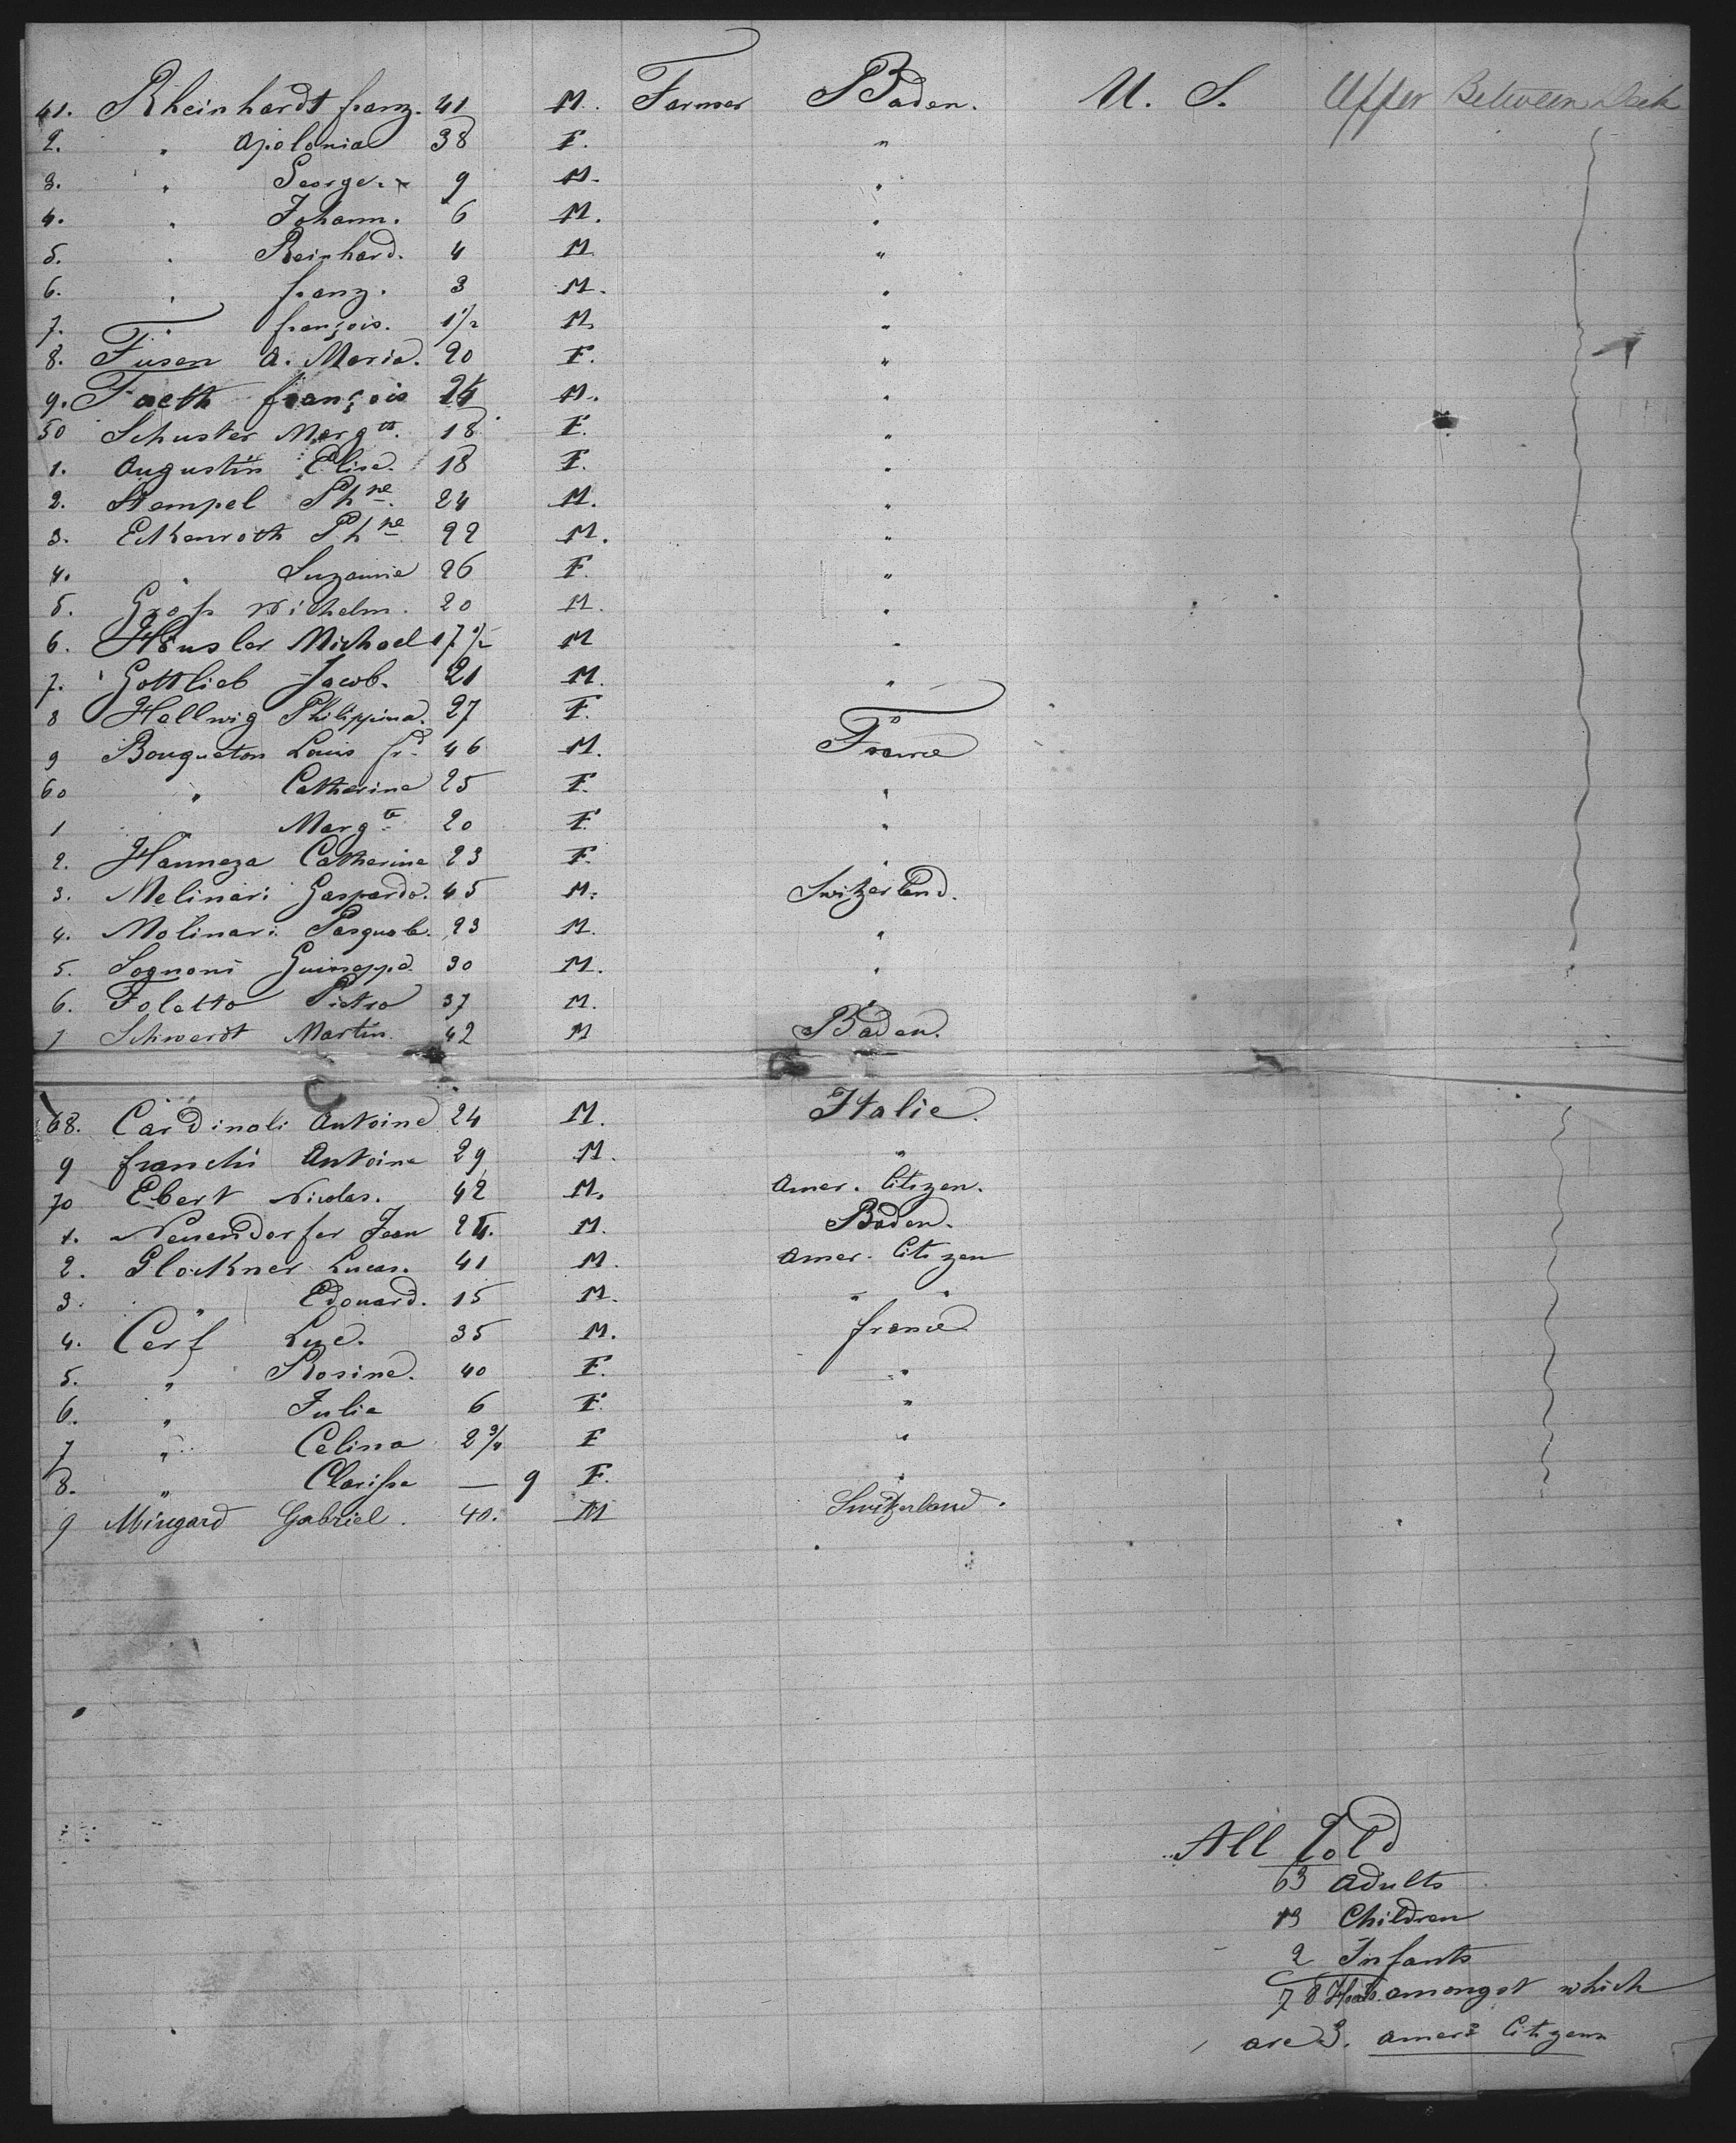 41. Rheinhardt franz. 41 M. Farmer Baden. U. S. Upper Between Deck
2. " Apolonia 38 F. "
3. " George. 9 M. "
4. " Johann. 6 M. "
5. " Reinhard. 4 M "
6. " franz. 3 M. "
7. " françois. 1 1/2 M "
8. Fusen A. Maria. 20 F. "
9. Faeth françois 24 M. "
50 Schuster Marg te. 18 F. "
1. Augustin Elise. 18 F. "
2. Stempel Ph pe 24 M. "
3. Eckenroth Ph pe 22 M. "
4. " Suzanne 26 F. "
5. Groß Wilhelm. 20 M. "
6. Häusler Michael 17 1/2 M "
7. Gottlieb Jacob. 21 M. "
8 Hellwig Philippina. 27 F. "
9 Bougueton Louis fr d. 46 M. France
60 " Catherine 25 F. "
1 " Marg te 20 F. "
2. Hanneza Catherine 23 F. "
3. Melinari Gaspardo. 45 M. Switzerland.
4. Molinari Pasquale. 23 M. "
5. Sognoni Guiseppe. 30 M. "
6. Foletto Pietro 37 M. "
7 Schwerdt Martin. 42 M Baden.
68. Cardinali Antoine 24 M. Italie.
9 franchi Antoine 29 M. "
70 Ebert Nicolas. 42 M. Amer. Citizen.
1. Neuendorfer Jean 24. M. Baden.
2. Glockner Lucas. 41 M. Amer. Citizen
3. " Edouard. 15 M. " "
4. Cerf Luc. 35 M. france
5. " Rosine. 40 F. "
6. " Julie 6 F. "
7 " Celina 2 3/4 F "
8. " Clarisse — 9 F. "
9 Mingard Gabriel. 40. M Switzerland.
All Told
63 Adults
13 Children
2 Infants
78 Heads. amongst which
are 3. Amer. Citizens